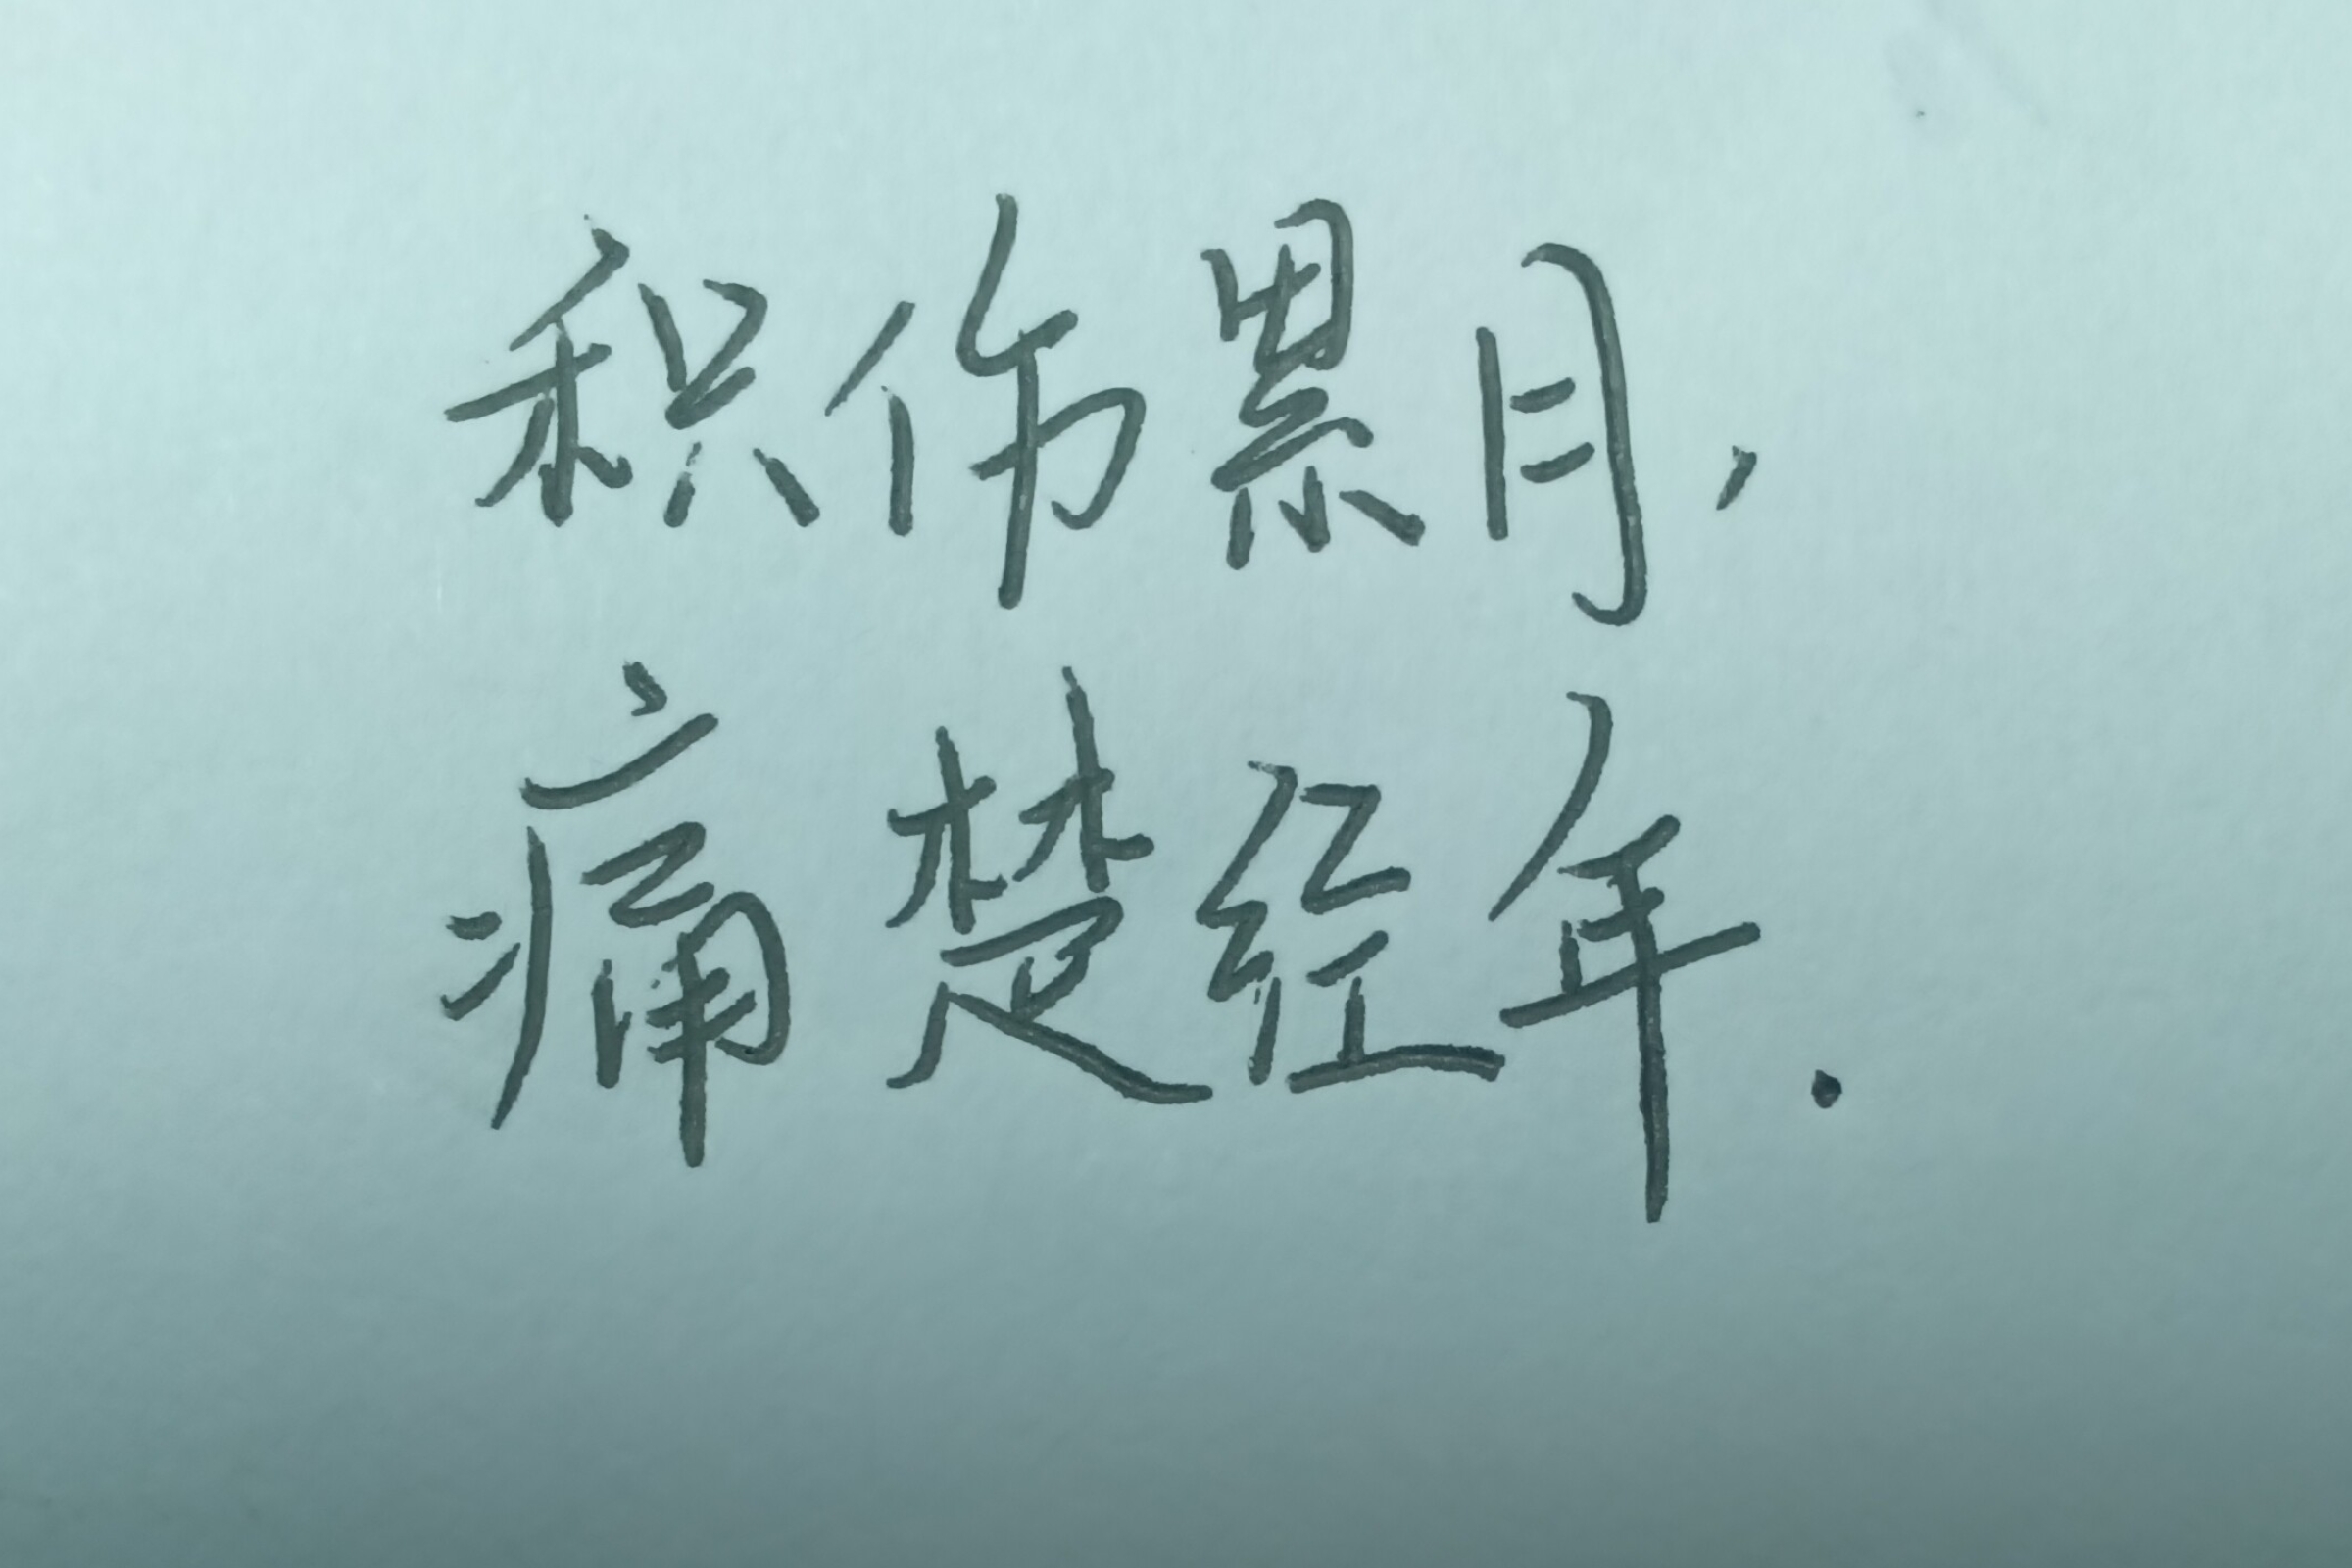 积伤累月,
痛楚经年.